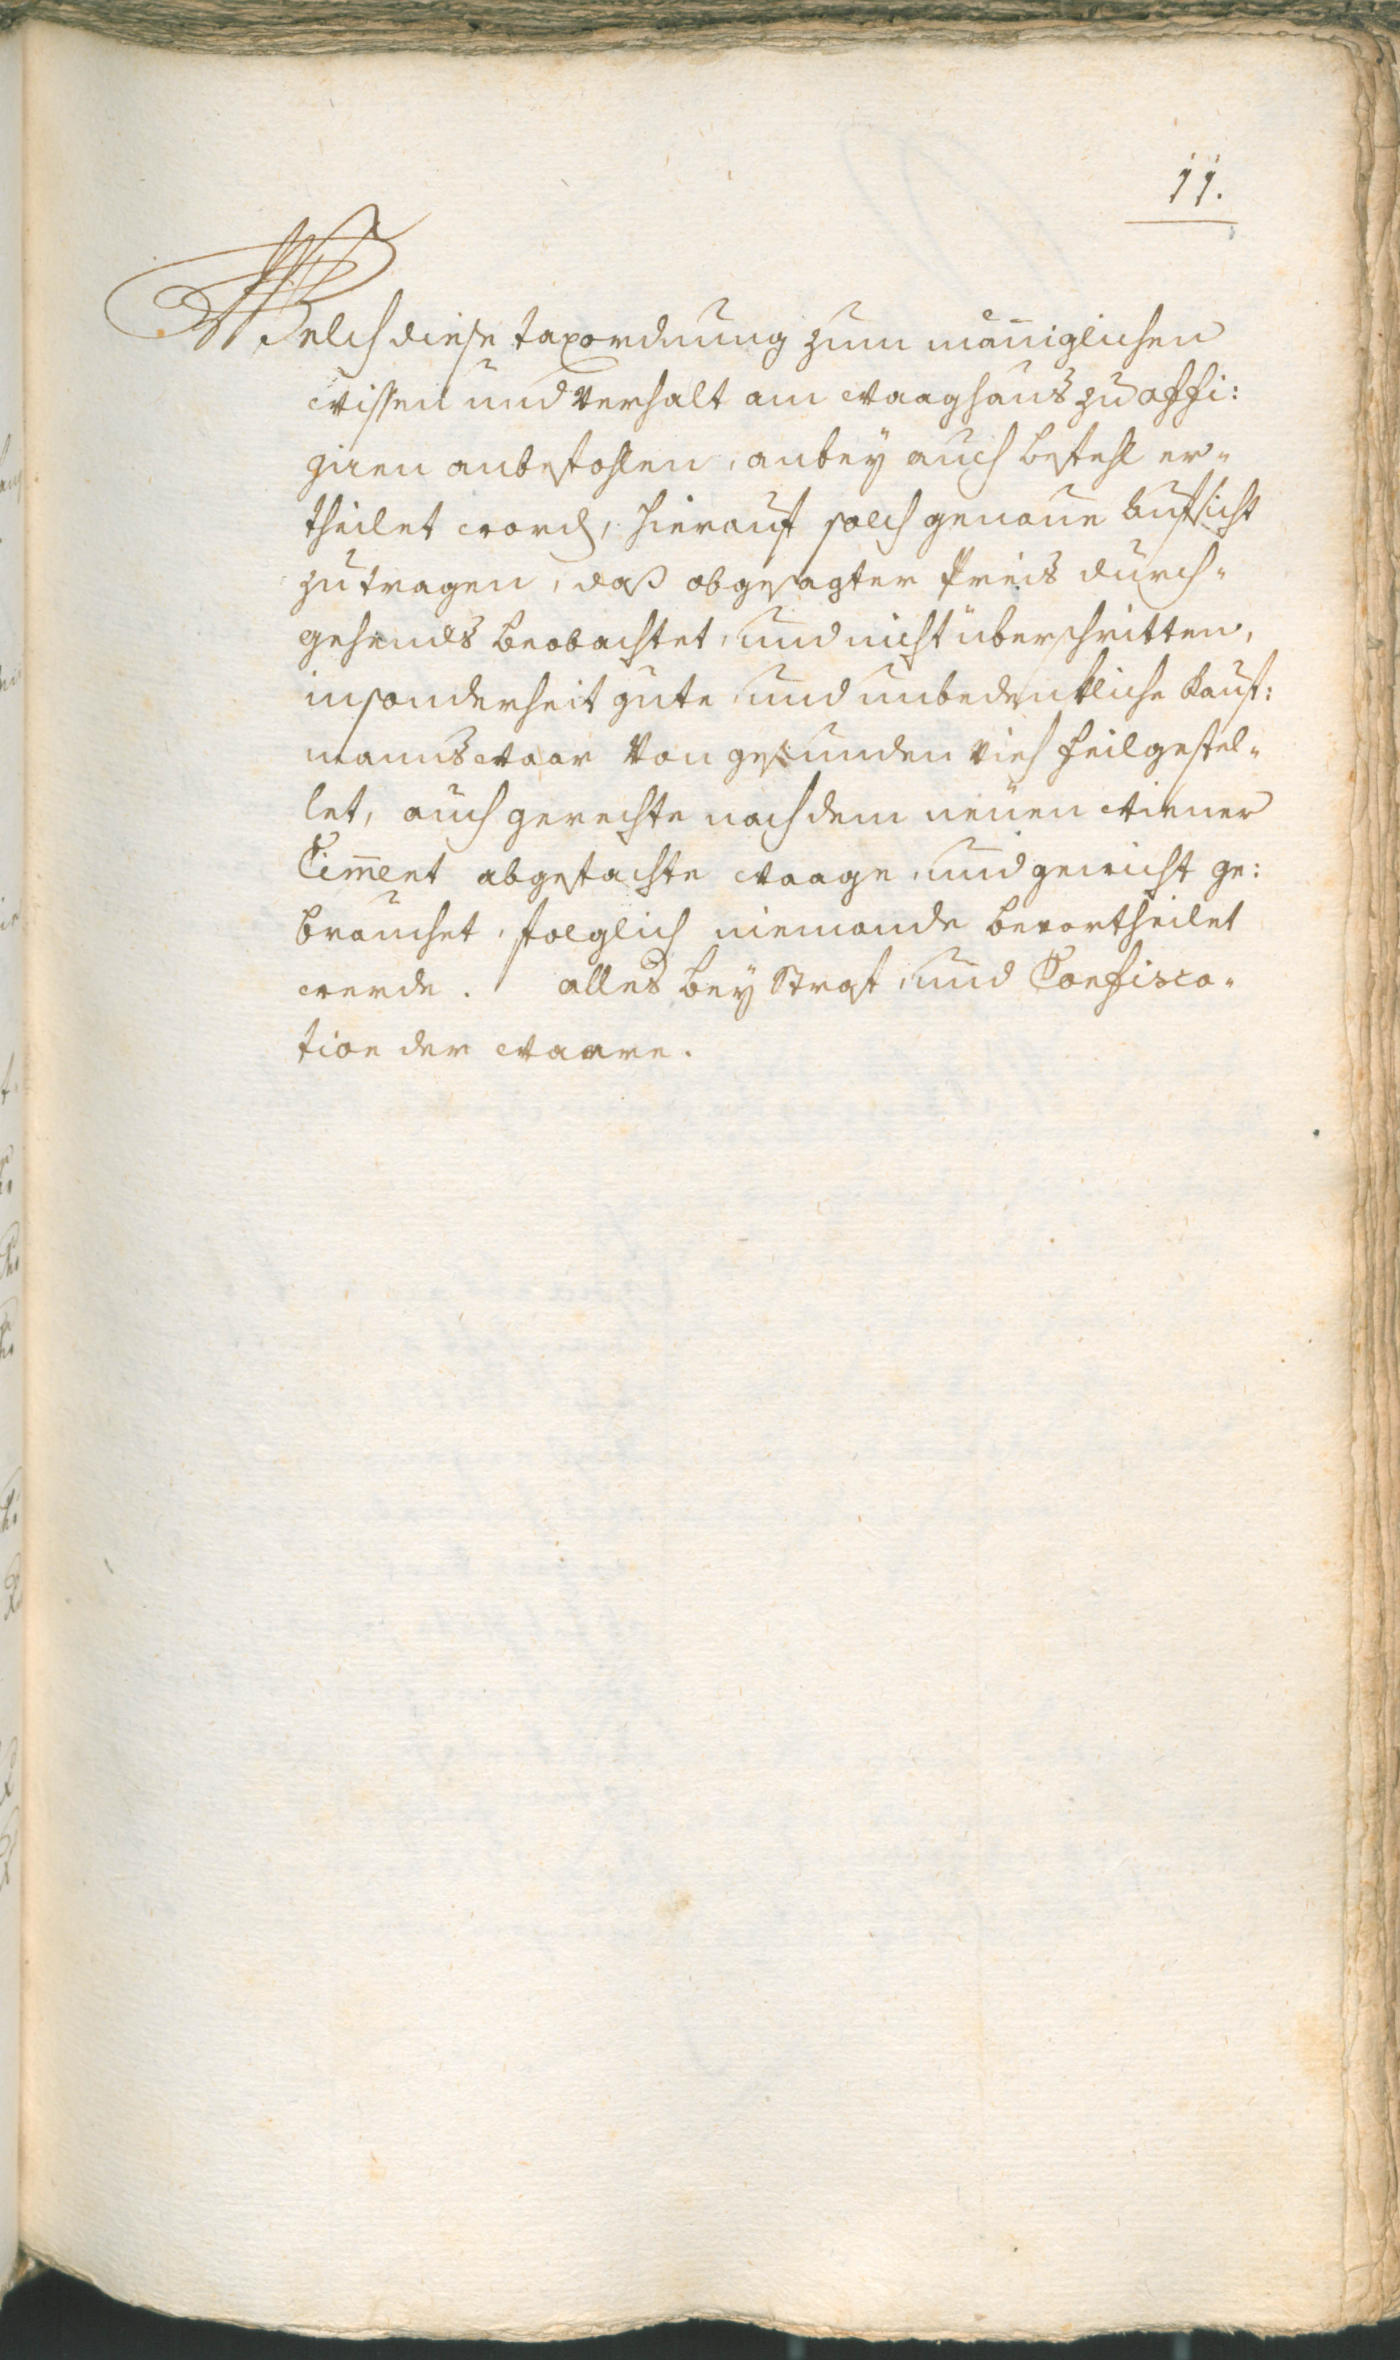 11.
Welch diese taxordnung zum mäniglichen
wissen und verhalt am waaghaus zu affi:
giren anbefohlen, anbey auch befehl er-
theilet word, hierauf solch genaue aufsicht
zutragen, daß obgesagter Preis durch-
gehends beobachtet, und nicht überschritten,
insonderheit gute und unbedenkliche kauf:
mannswaar von gesunden vieh feilgestel-
let, auch gerechte nach dem neuen wiener
Ciment abgefachte waage, und gewicht ge:
brauchet, folglich niemande bevortheilet
werde. alles bey Straf, und Confisca-
tion der waare.